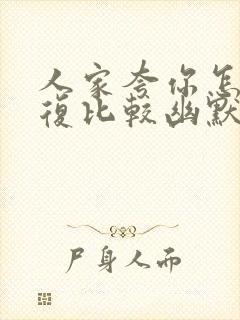 人家夸你怎
復比較幽默
尸身人而